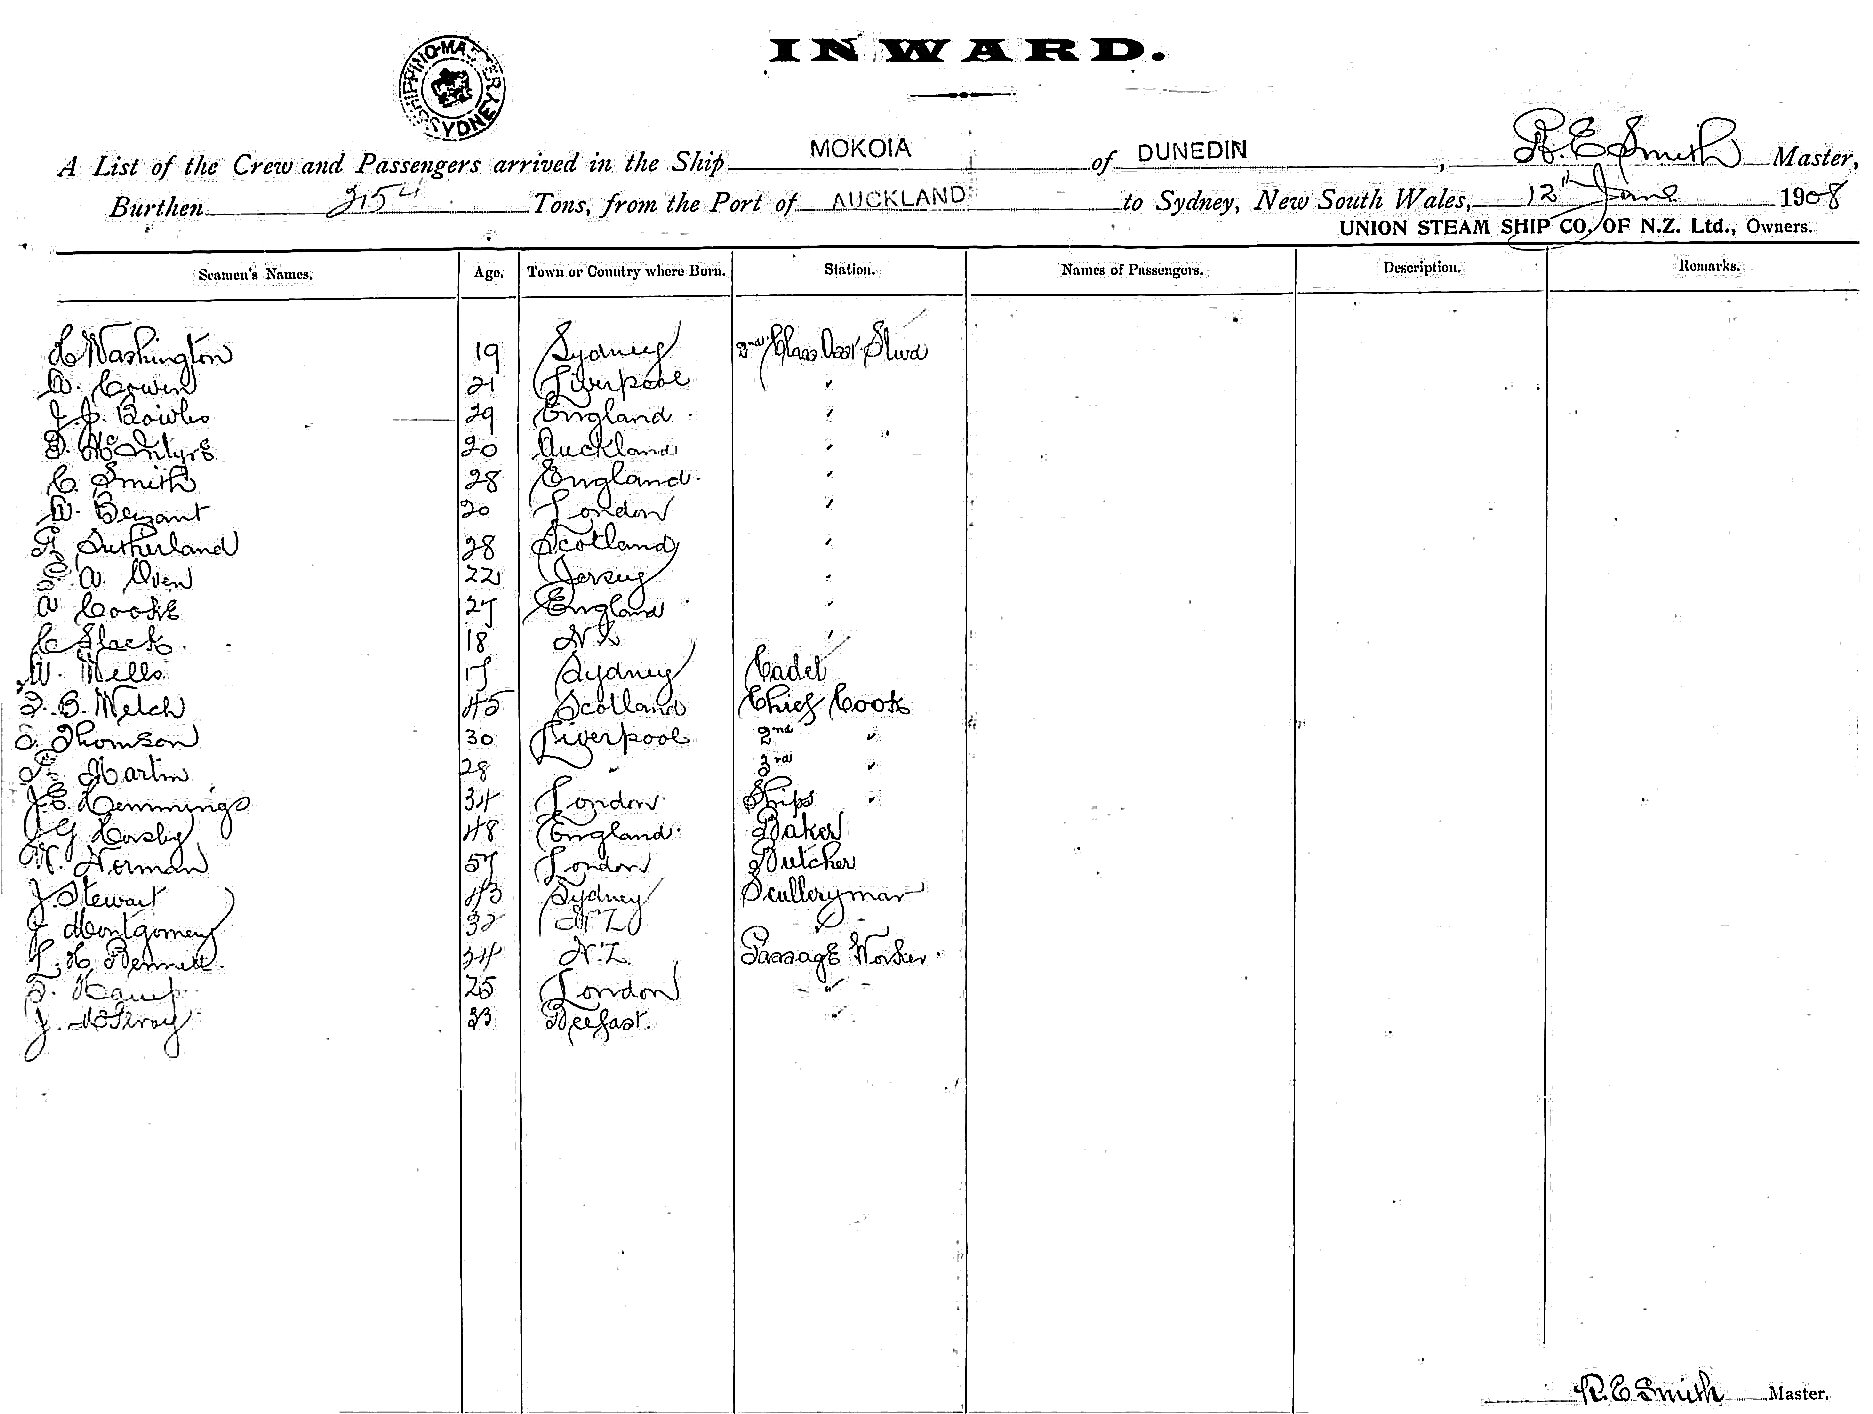 INWARD.
SHIPPING MASTER SYDNEY
A List of the Crew and Passengers arrived in the Ship MOKOIA of DUNEDIN, R. E. Smith Master,
Burthen 2154 Tons, from the Port of AUCKLAND to Sydney, New South Wales, 12th June 1908
UNION STEAM SHIP CO. OF N.Z. Ltd., Owners.
Seamen's Names. Age. Town or Country where Born. Station. Names of Passengers. Description. Remarks.
Washington 19 Sydney 2nd Class Asst. Stwd
W. Cowin 21 Liverpool "
Bowles 29 England "
McIntyre 20 Auckland "
C. Smith 28 England "
W. Bezant 20 London "
Sutherland 28 Scotland "
A. Oven 22 Jersey "
A Cooke 27 England "
C Slack 18 N.Z. "
W. Mells 17 Sydney Cadet
Welch 45 Scotland Chief Cook
Thomson 30 Liverpool 2nd "
Martin 28 " 3rd "
J. E. Hemmings 34 London Ships "
G Crosby 48 England Baker
Norman 57 London Butcher
J. Stewart 43 Sydney Sculleryman
J Montgomery 32 N.Z. "
L. H. Bennett 24 N.Z. Passage Worker
25 London "
J. McIlroy 33 Belfast. "
R. E. Smith Master.